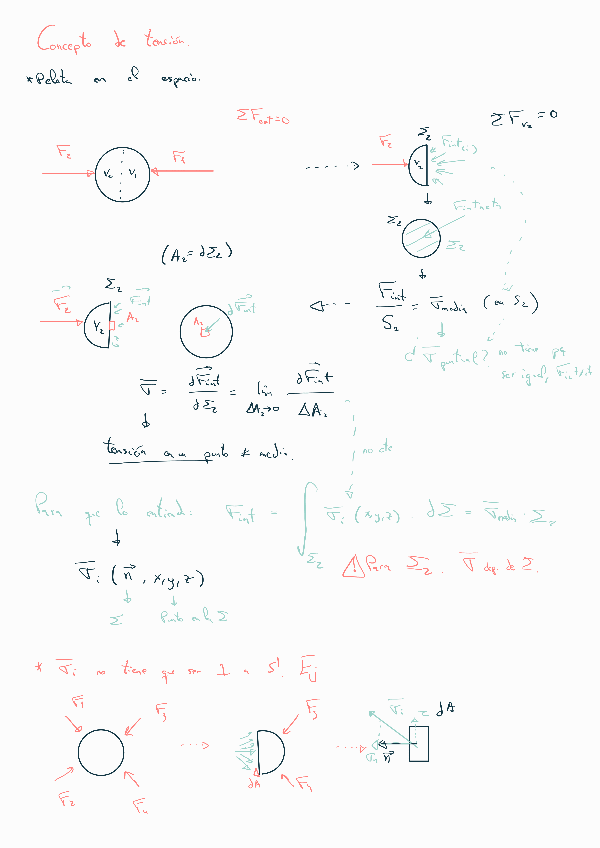 Concepto de tensión.
* Pelota en el espacio.
ΣF ext = 0
ΣF v₂ = 0
F₂ V₂ V₁ F₁
F₂ V₂ Σ₂ Fint
Σ₂ Fint neta
Σ₂
(A₂ = dΣ₂)
F₂ V₂ Σ₂ Fint A₂
A₂ dFint
Fint / S₂ = σ media (en S₂)
¿σ puntual? no tiene pq
ser igual, Fint
σ = dFint / dΣ₂ = lim ΔA₂→0 dFint / ΔA₂
tensión en un punto * medio.
no cte
Para que lo entiend: Fint = ∫Σ₂ σi (x,y,z) · dΣ = σ media · Σ₂
σi (n, x,y,z)
⚠ Para Σ₂. σ dep. de Σ.
Σ Punto en la Σ
* σi no tiene que ser ⊥ a S!
F₁ F₃
F₂ F₄
F₃ dA
σi τ dA
σn n